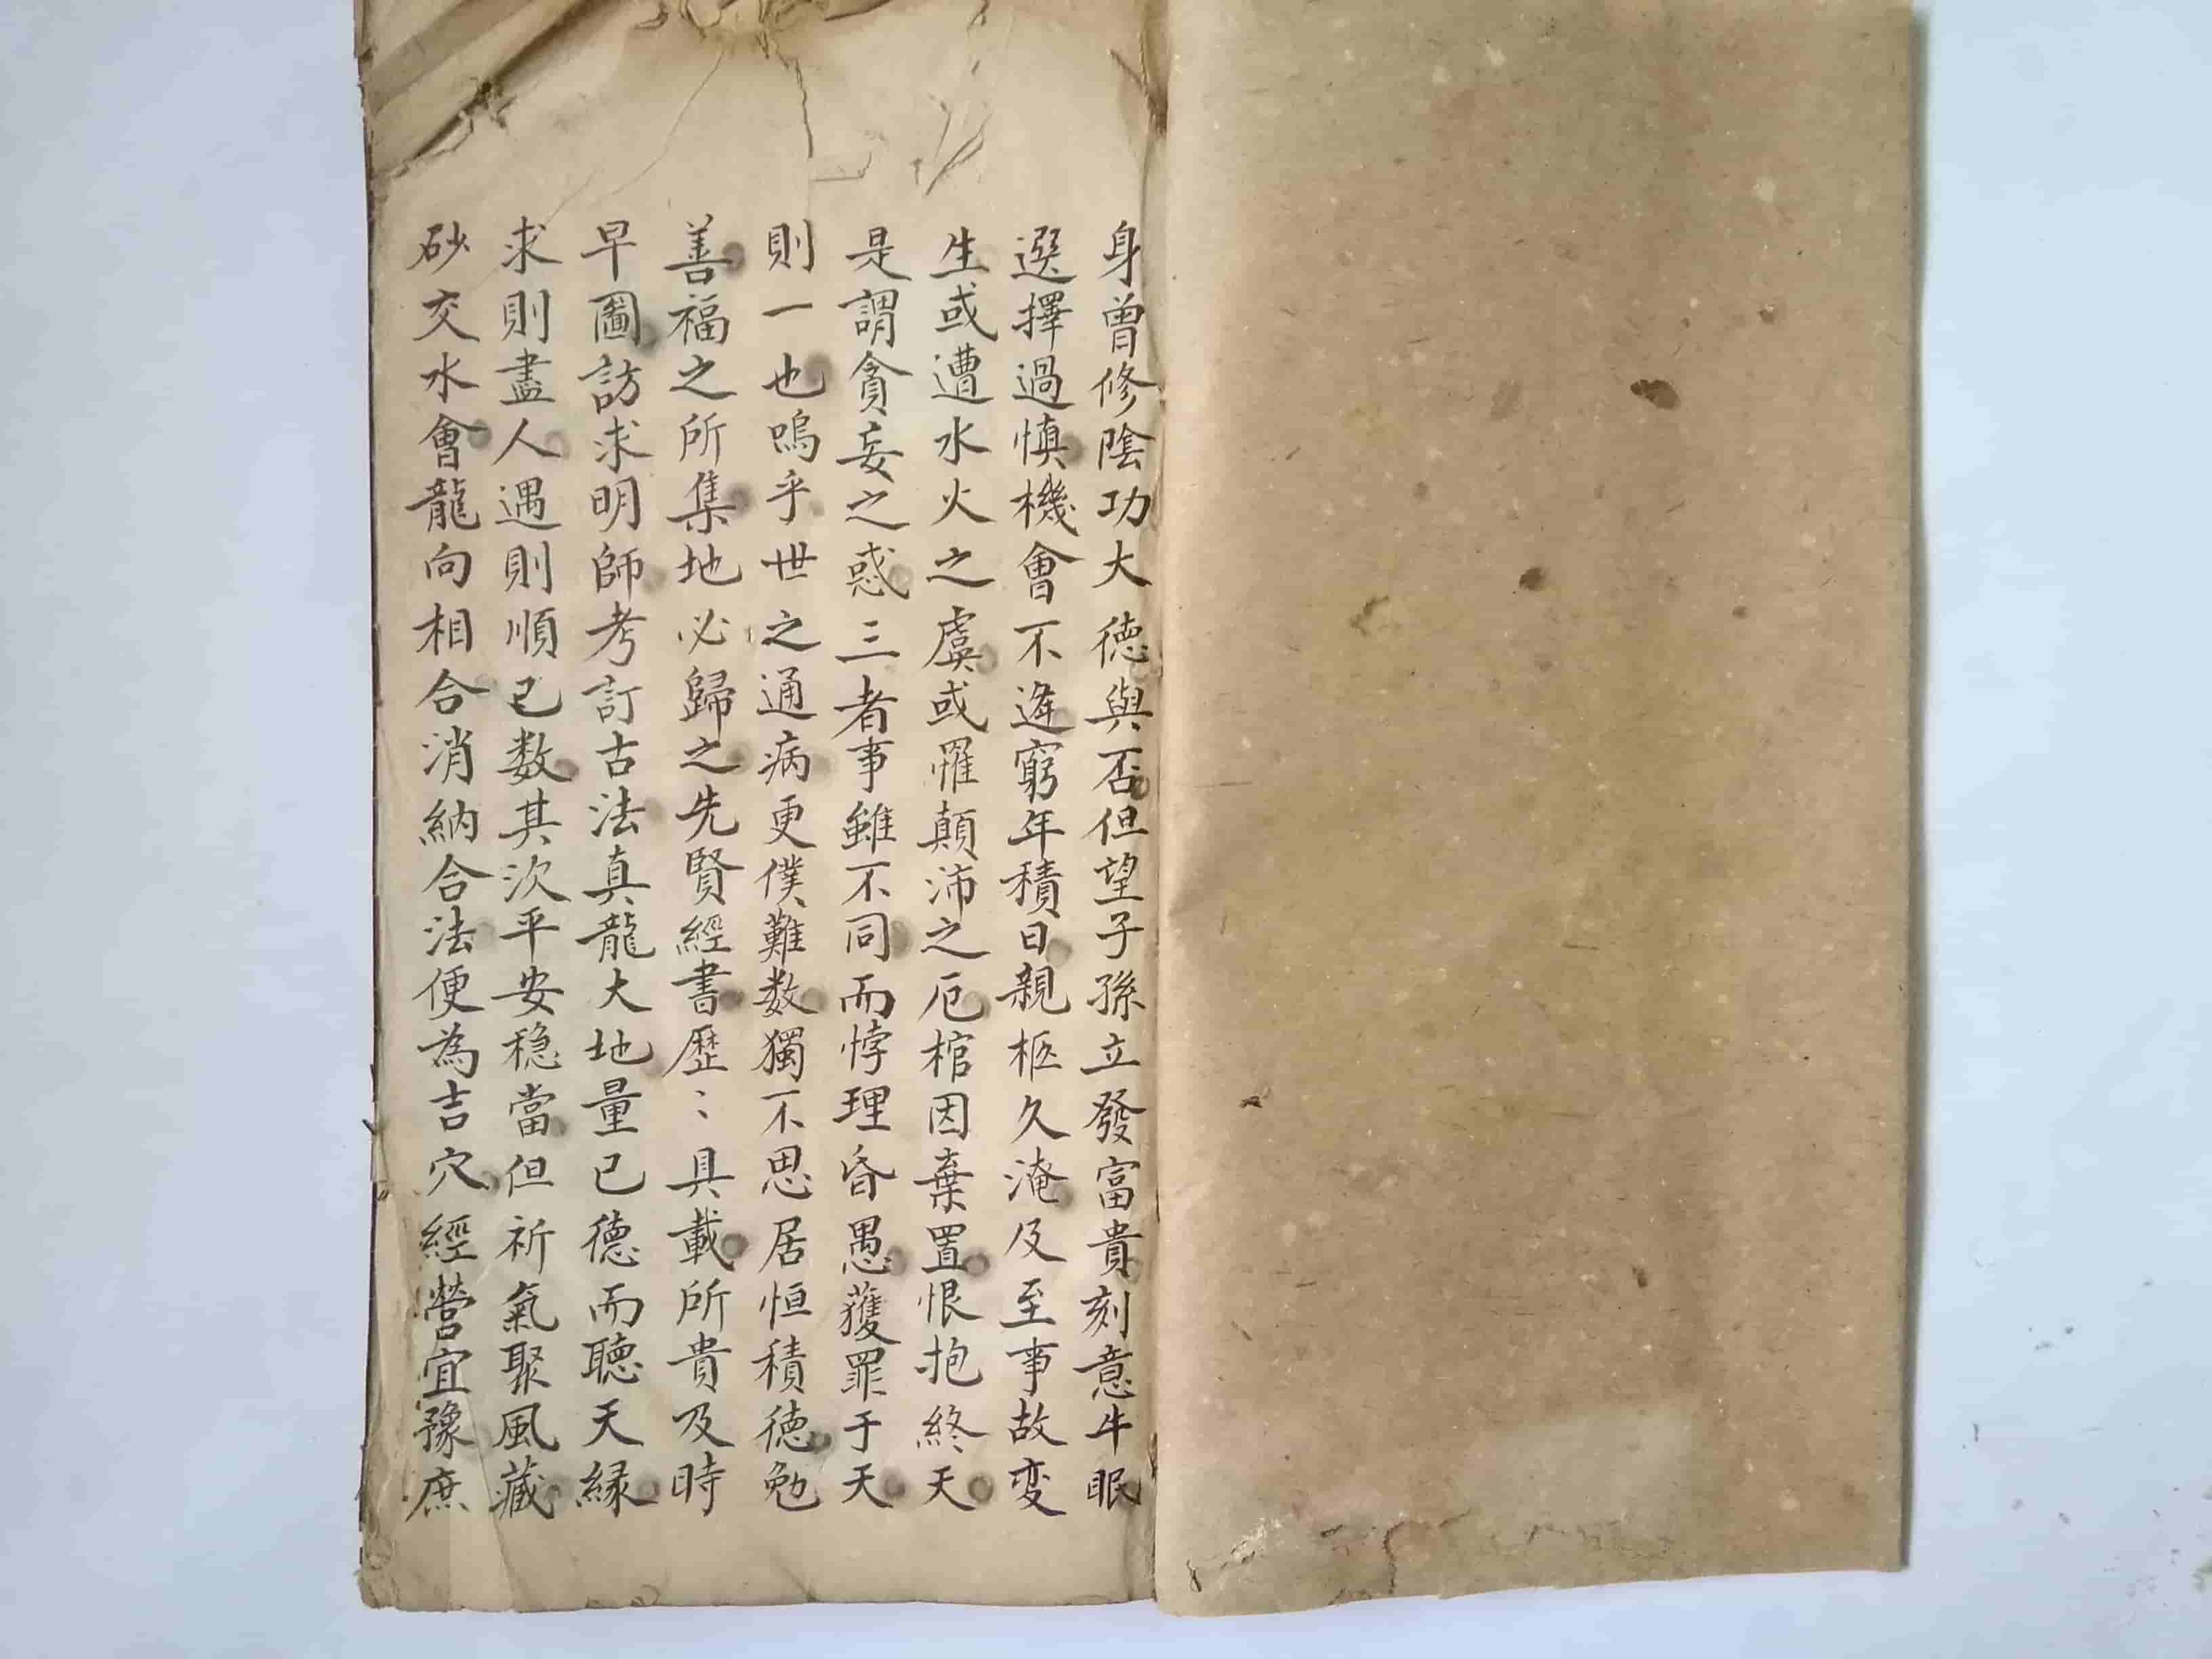 身曾修陰功大德與否但望子孫立發富貴刻意牛眠
選擇過慎機會不逢窮年積日親柩久淹及至事故变
生或遭水火之虞或罹顛沛之厄棺因棄置恨抱終天
是謂貪妄之惑三者事雖不同而悖理昏愚獲罪于天
則一也嗚乎世之通病更僕難数獨不思居恒積德勉
善福之所集地必歸之先賢經書歷〻具載所貴及時
早圖訪求明師考訂古法真龍大地量已德而聽天緣
求則盡人遇則順已数其次平安稳當但祈氣聚風藏
砂交水會龍向相合消納合法便為吉穴經營宜豫庶